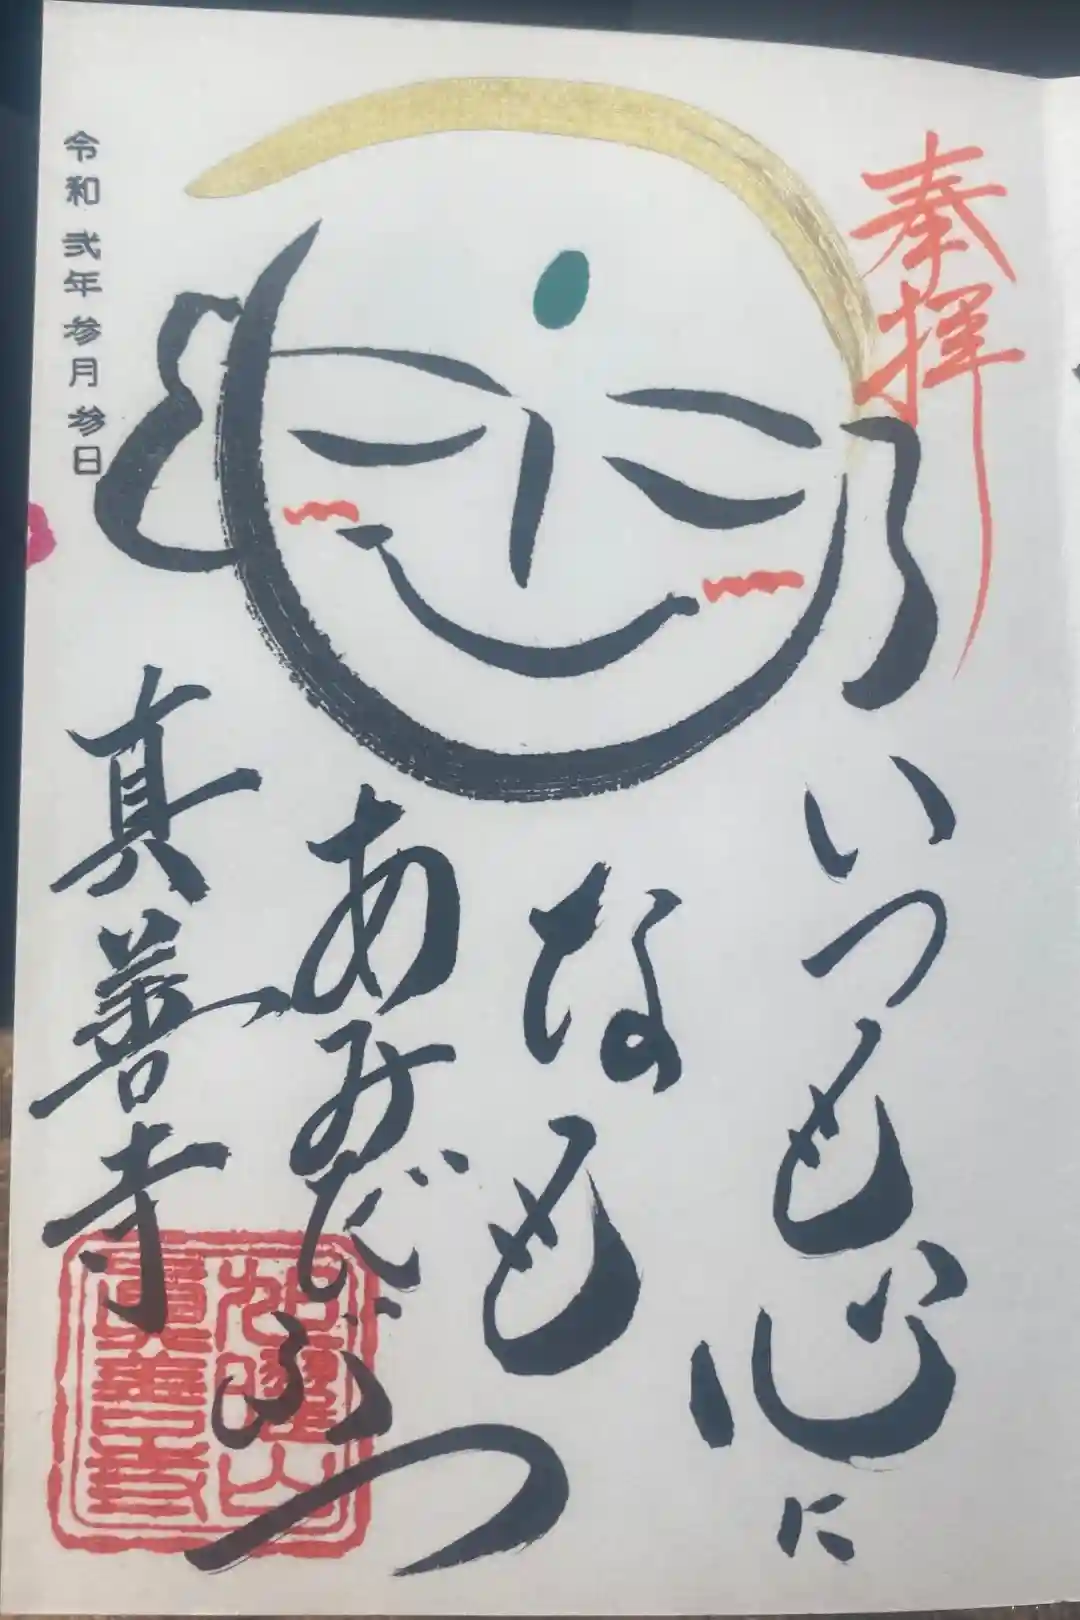 奉拝
いつも心に
なも
あみだぶつ
真善寺
令和弐年参月参日